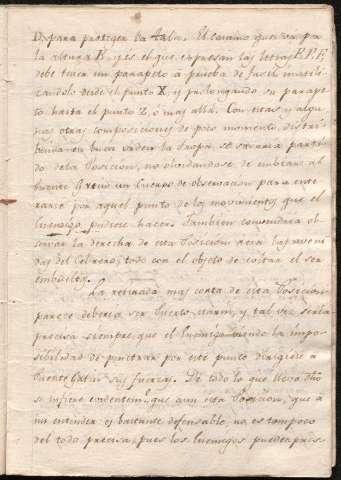 D, para proteger la tala. El camino que va por
la altura R, y es el que expresan las letras P. P. P.
debe tener un parapeto à prueba de fusil inutili-
zandolo desde el punto X, y prolongando su parape-
to hasta el punto Z, ó mas allá. Con estas y algu-
nas otras composiciones de poco momento, distri-
buida en buen orden la tropa, se sacaria parti-
do de la Posicion, no olvidandose de embiar al
Puente un Cuerpo de observacion para ente-
rarse por aquel punto de los movimientos que el
Enemigo pudiere hacer. Tambien convendria ob-
servar la derecha de esta Posicion acia las
del Cebrero, todo con el objeto de evitar el ser
embueltos.
La retirada mas corta de esta Posicion
parece deberia ser Puerto-marin, y tal vez seria
precisa siempre que el Enemigo viendo la impo-
sibilidad de penetrar por este punto dirigiese à
Puente sus fuerzas. De todo lo que llevo dho
se infiere evidentem.te que aun esta Posicion, que à
mi entender es bastante defensable, no es tampoco
del todo precisa, pues los Enemigos pueden